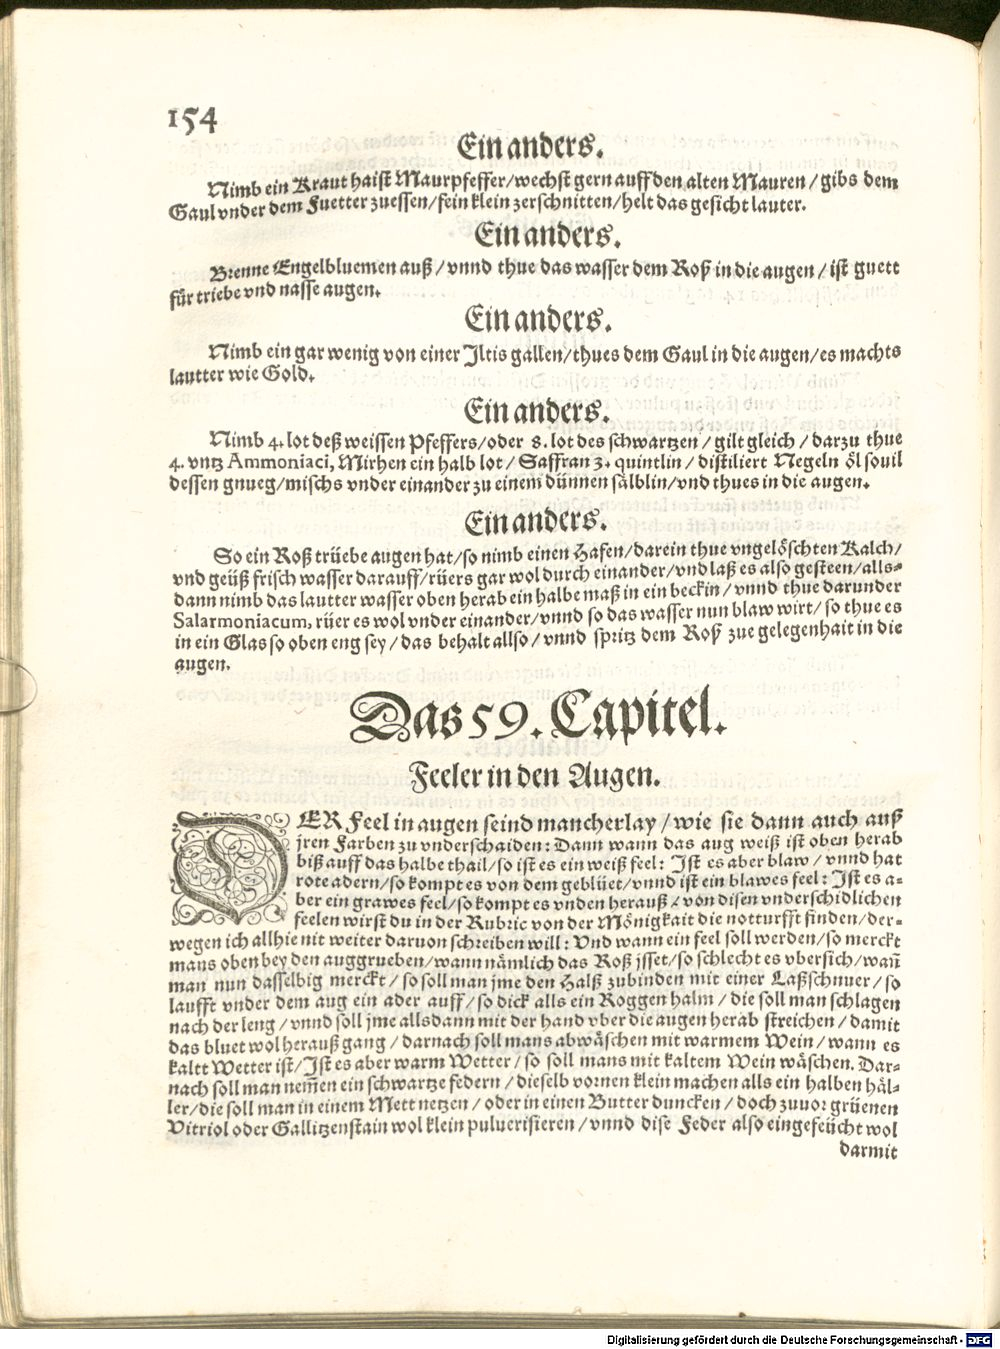 154
Ein anders.
Nimb ein Kraut haist Maurpfeffer/wechst gern auff den alten Mauren / gibs dem
Gaul vnder dem Fuetter zuessen/fein klein zerschnitten/helt das gesicht lauter.
Ein anders.
Brenne Engelbluemen auß / vnnd thue das wasser dem Roß in die augen / ist guett
für triebe vnd nasse augen.
Ein anders.
Nimb ein gar wenig von einer Iltis gallen/thues dem Gaul in die augen/es machts
lautter wie Gold.
Ein anders.
Nimb 4. lot deß weissen Pfeffers/oder 8. lot des schwartzen / gilt gleich / darzu thue
4. vntz Ammoniaci, Mirhen ein halb lot / Saffran 3. quintlin / distiliert Negeln öl souil
dessen gnueg/mischs vnder einander zu einem dünnen sälblin/vnd thues in die augen.
Ein anders.
So ein Roß trüebe augen hat/so nimb einen Hafen/darein thue vngelöschten Kalch/
vnd geüß frisch wasser darauff/rüers gar wol durch einander/vnd laß es also gesteen/alls-
dann nimb das lautter wasser oben herab ein halbe maß in ein beckin/vnnd thue darunder
Salarmoniacum, rüer es wol vnder einander/vnnd so das wasser nun blaw wirt/so thue es
in ein Glas so oben eng sey/das behalt allso/vnnd spritz dem Roß zue gelegenhait in die
augen.
Das 59. Capitel.
Feeler in den Augen.
DER Feel in augen seind mancherlay/wie sie dann auch auß
jren Farben zu vnderschaiden: Dann wann das aug weiß ist oben herab
biß auff das halbe thail/so ist es ein weiß feel: Ist es aber blaw/vnnd hat
rote adern/so kompt es von dem geblüet/vnnd ist ein blawes feel: Ist es a-
ber ein grawes feel/so kompt es vnden herauß/von disen vnderschidlichen
feelen wirst du in der Rubric von der Mönigkait die notturfft finden/der-
wegen ich allhie nit weiter daruon schreiben will: Vnd wann ein feel soll werden/so merckt
mans oben bey den auggrueben/wann nämlich das Roß jsset/so schlecht es vbersich/wañ
man nun dasselbig merckt/so soll man jme den Halß zubinden mit einer Laßschnuer/so
laufft vnder dem aug ein ader auff/so dick alls ein Roggen halm/die soll man schlagen
nach der leng/vnnd soll jme allsdann mit der hand vber die augen herab streichen/damit
das bluet wol herauß gang/darnach soll mans abwäschen mit warmem Wein/wann es
kaltt Wetter ist/Ist es aber warm Wetter/so soll mans mit kaltem Wein wäschen. Dar-
nach soll man nem̃en ein schwartze federn/dieselb vornen klein machen alls ein halben häl-
ler/die soll man in einem Mett netzen/oder in einen Butter duncken/doch zuuor grüenen
Vitriol oder Gallitzenstain wol klein puluerisieren/vnnd dise Feder also eingefeücht wol
darmit
Digitalisierung gefördert durch die Deutsche Forschungsgemeinschaft - DFG